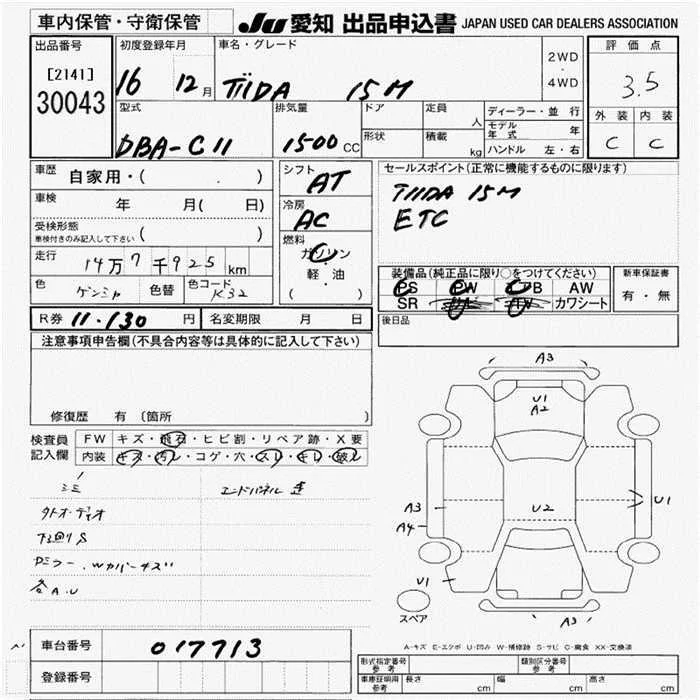 車内保管・守衛保管
JU 愛知 出品申込書 JAPAN USED CAR DEALERS ASSOCIATION
出品番号
[2141]
30043
初度登録年月
16 12月
車名・グレード
TIIDA 15M
2WD
・
4WD
評価点
3.5
外装 内装
C C
型式
DBA-C11
排気量
1500cc
ドア
形状
定員 人
積載 kg
ディーラー・並行
モデル年式 年
ハンドル 左・右
車歴 自家用・( . )
車検 年 月( 日)
受検形態
車検付きのみ記入して下さい ( )
走行 14万7千925km
色 色替 色コード K32
シフト AT
冷房 AC
燃料
ガソリン
・
軽・油
( )
セールスポイント(正常に機能するものに限ります)
TIIDA 15M
ETC
装備品(純正品に限り○をつけてください)
PS PW AB AW
SR カワシート
新車保証書
有・無
後日品
R券 11.130円
名変期限 月 日
注意事項申告欄(不具合内容等は具体的に記入して下さい)
修復歴 有 (箇所 )
検査員
記入欄
FW キズ・飛石・ヒビ割・リペア跡・X要
内装 キズ・汚レ・コゲ・穴・スレ・キレ・破レ
エンドパネル
下回りS
各A.U
A3
U1
A2
A3
A4
U2
U1
U1
A3
スペア
A-キズ E-エクボ U-凹み W-補修跡 S-サビ C-腐食 XX-交換済
車台番号 017713
登録番号
形式指定番号
参考
類別区分番号
参考
車庫証明用
参考
長さ cm 幅 cm 高さ cm